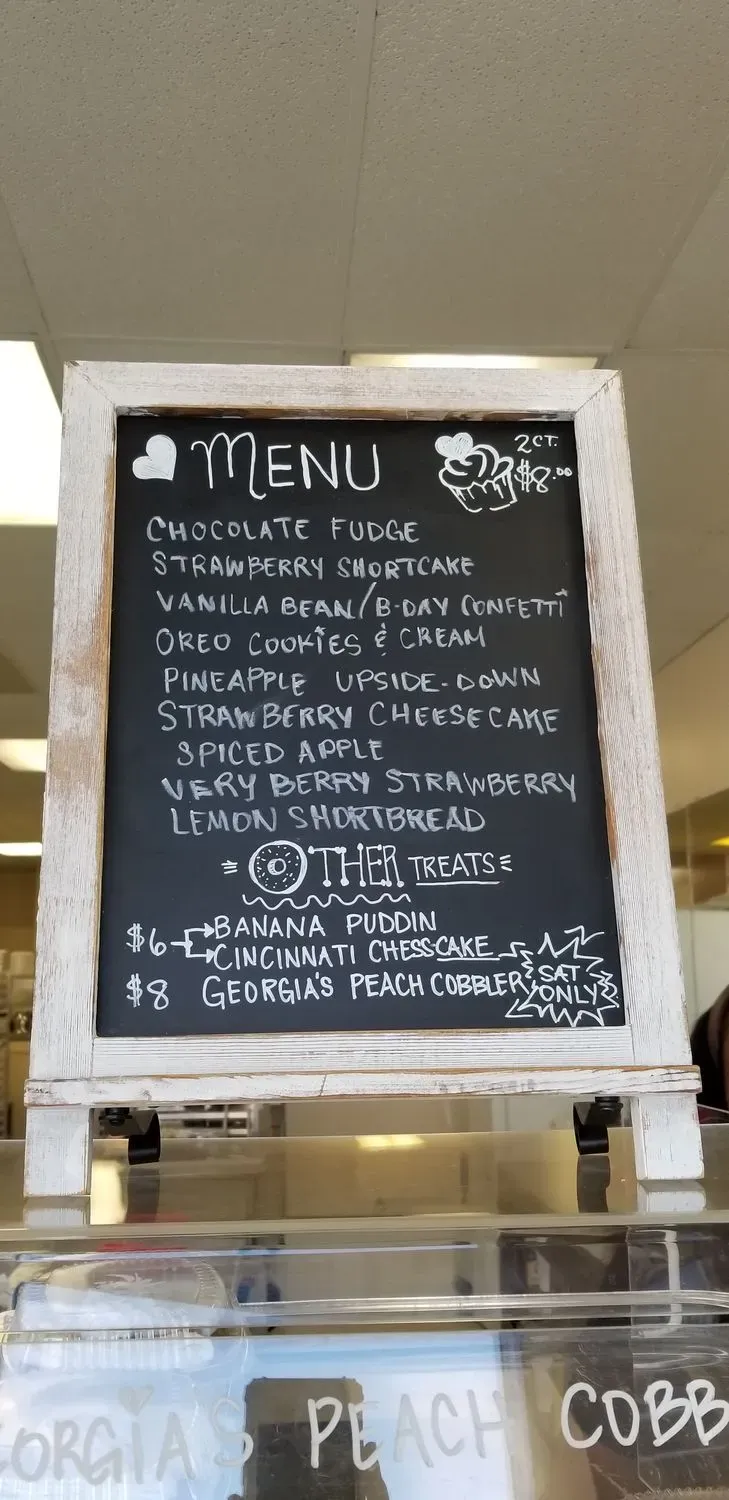 MENU
2CT.
$8.00
CHOCOLATE FUDGE
STRAWBERRY SHORTCAKE
VANILLA BEAN/B-DAY CONFETTI
OREO COOKIES & CREAM
PINEAPPLE UPSIDE-DOWN
STRAWBERRY CHEESECAKE
SPICED APPLE
VERY BERRY STRAWBERRY
LEMON SHORTBREAD
OTHER TREATS
$6 BANANA PUDDIN
CINCINNATI CHESS-CAKE
$8 GEORGIA'S PEACH COBBLER
SAT
ONLY
EORGIA'S PEACH COBB